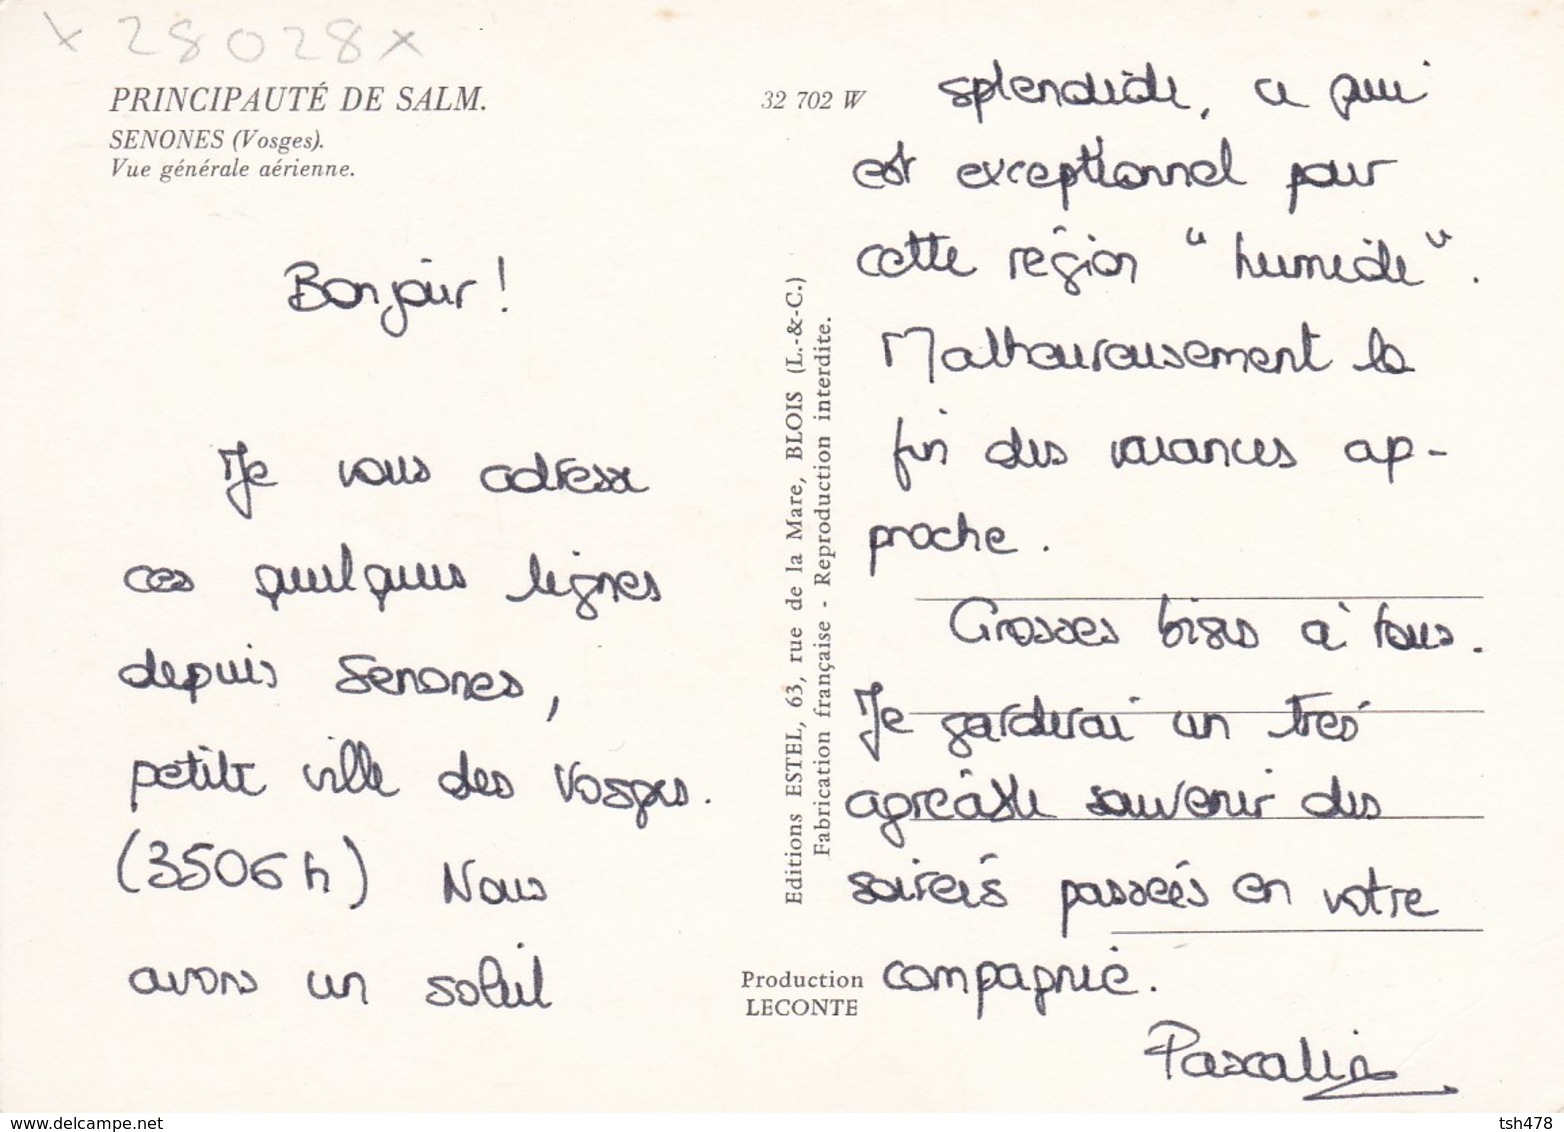 x 28028 x
PRINCIPAUTÉ DE SALM.
SENONES (Vosges).
Vue générale aérienne.
32 702 W
Bonjour !
Je vous adresse
ces quelques lignes
depuis Senones,
petite ville des Vosges.
(3506 h) Nous
avons un soleil
Editions ESTEL, 63, rue de la Mare, BLOIS (L.-&-C.)
Fabrication française - Reproduction interdite.
Production
LECONTE
splendide, ce qui
est exceptionnel pour
cette région "humide".
Malheureusement la
fin des vacances ap-
proche.
Grosses bises à tous.
Je garderai un très
agréable souvenir des
soireés passeés en votre
compagnie.
Pascaline
www.delcampe.net
tsh478